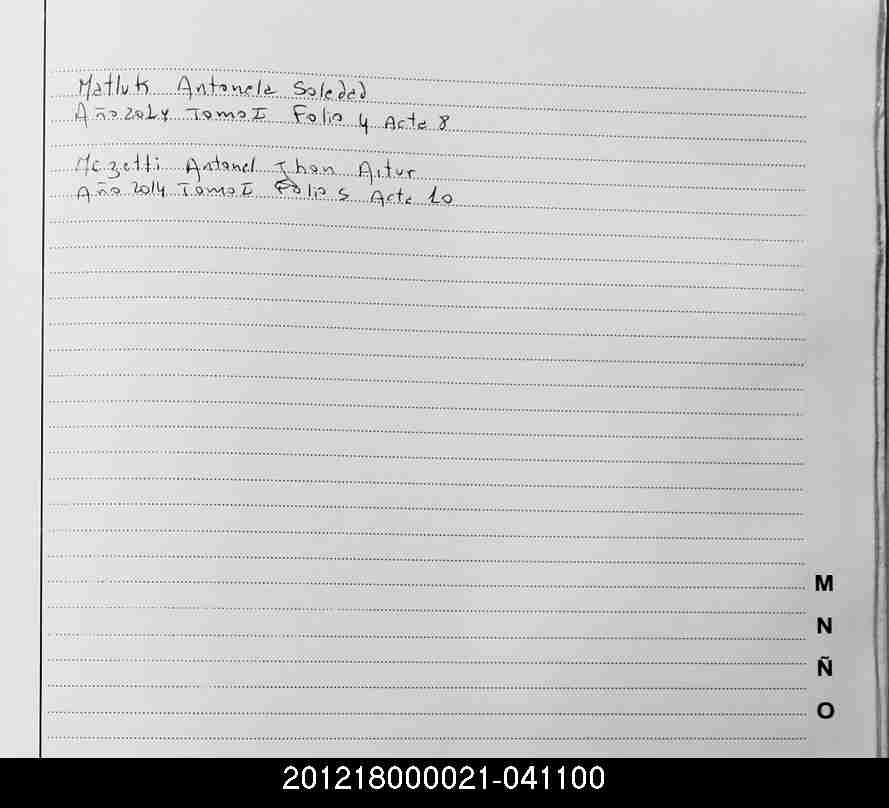 Matluk Antonela Soledad
Año 2014 Tomo I Folio 4 Acta 8
Mazetti Antonel Jhon Aitur
Año 2014 Tomo I Folio 5 Acta 10
M
N
Ñ
O
201218000021-041100